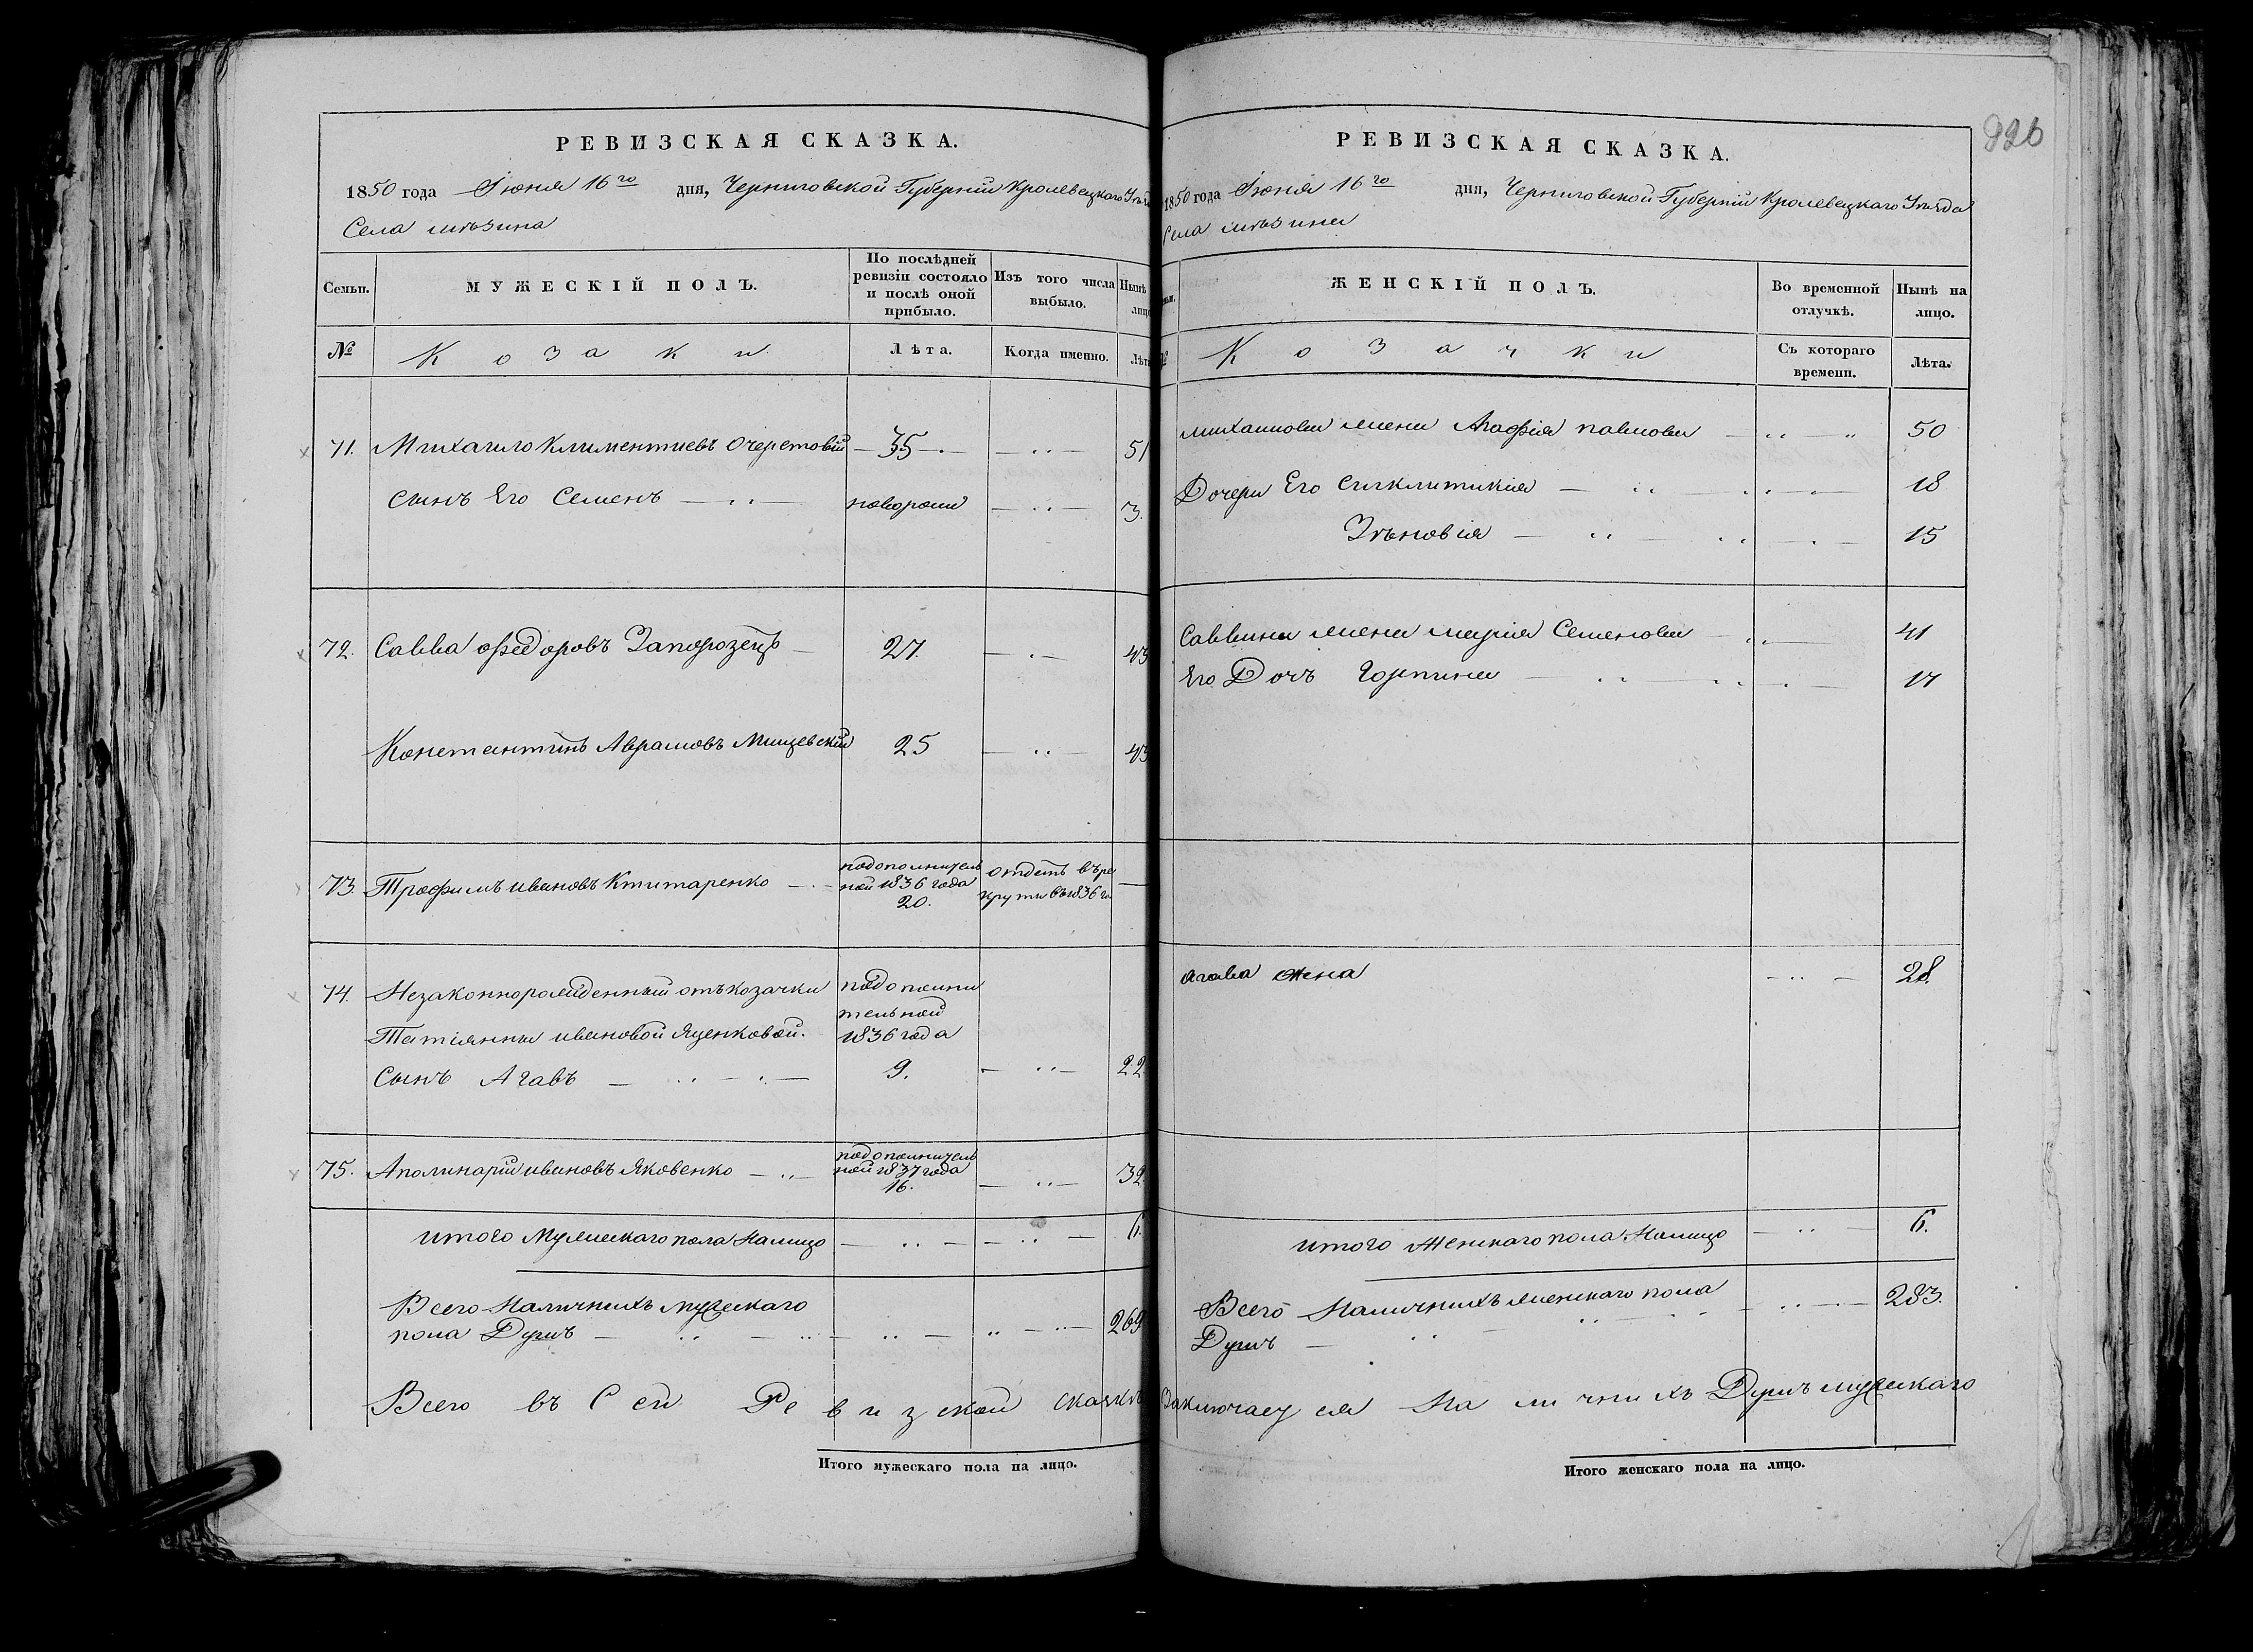 РЕВИЗСКАЯ СКАЗКА.
1850 года Іюня 16го дня, Черниговской Губерніи Кролевецкаго Уѣзд
Села мѣзина
Семьи.
МУЖЕСКІЙ ПОЛЪ.
По послѣдней ревизіи состояло и послѣ оной прибыло.
Изъ того числа выбыло.
Нынѣ лицо
№
Козаки
Лѣта.
Когда именно.
Лѣт
71. Михайло Климентиевъ Очеретовій 35 51
сынъ Его Семенъ новорож 3.
72. Савва Федоровъ Запорозецъ 27. 43
Константинъ Аврамовъ Мищевскій 25 43
73 Трофимъ ивановъ Ктитаренко
подополнитель
ной 1836 года
20.
отдатъ въре
круты въ1836 го
74. Незаконнорожденный отъкозачки
Татіянны ивановой Яценковой.
сынъ Агавъ
подополни
тельной
1836 года
9. 22.
75. Аполинарій ивановъ Яковенко
подополнитель
ной 1837 года
16. 32
итого Мужескаго пола Налицо 6.
Всего Наличныхъ мужескаго
пола Душъ 269
Всего въ Сей Ревизской сказкѣ
Итого мужескаго пола на лицо.
926
РЕВИЗСКАЯ СКАЗКА.
1850 года Іюня 16го дня, Черниговской Губерніи Кролевецкаго Уѣзда
Села мѣзина
ьи.
ЖЕНСКІЙ ПОЛЪ.
Во временной отлучкѣ.
Нынѣ на лицо.
№
Козачки
Съ котораго времени.
Лѣта.
михайлова жена Агафія павлова 50
Дочери Его Сигклитикія 18
Зѣновія 15
Саввина жена марія Семенова 41
Его Дочъ Горпина 17
агава жена 28.
итого Женскаго пола Налицо 6.
Всего Наличныхъ женскаго пола 283.
Душъ
Заключаеця Наличныхъ Душъ мужескаго
Итого женскаго пола на лицо.